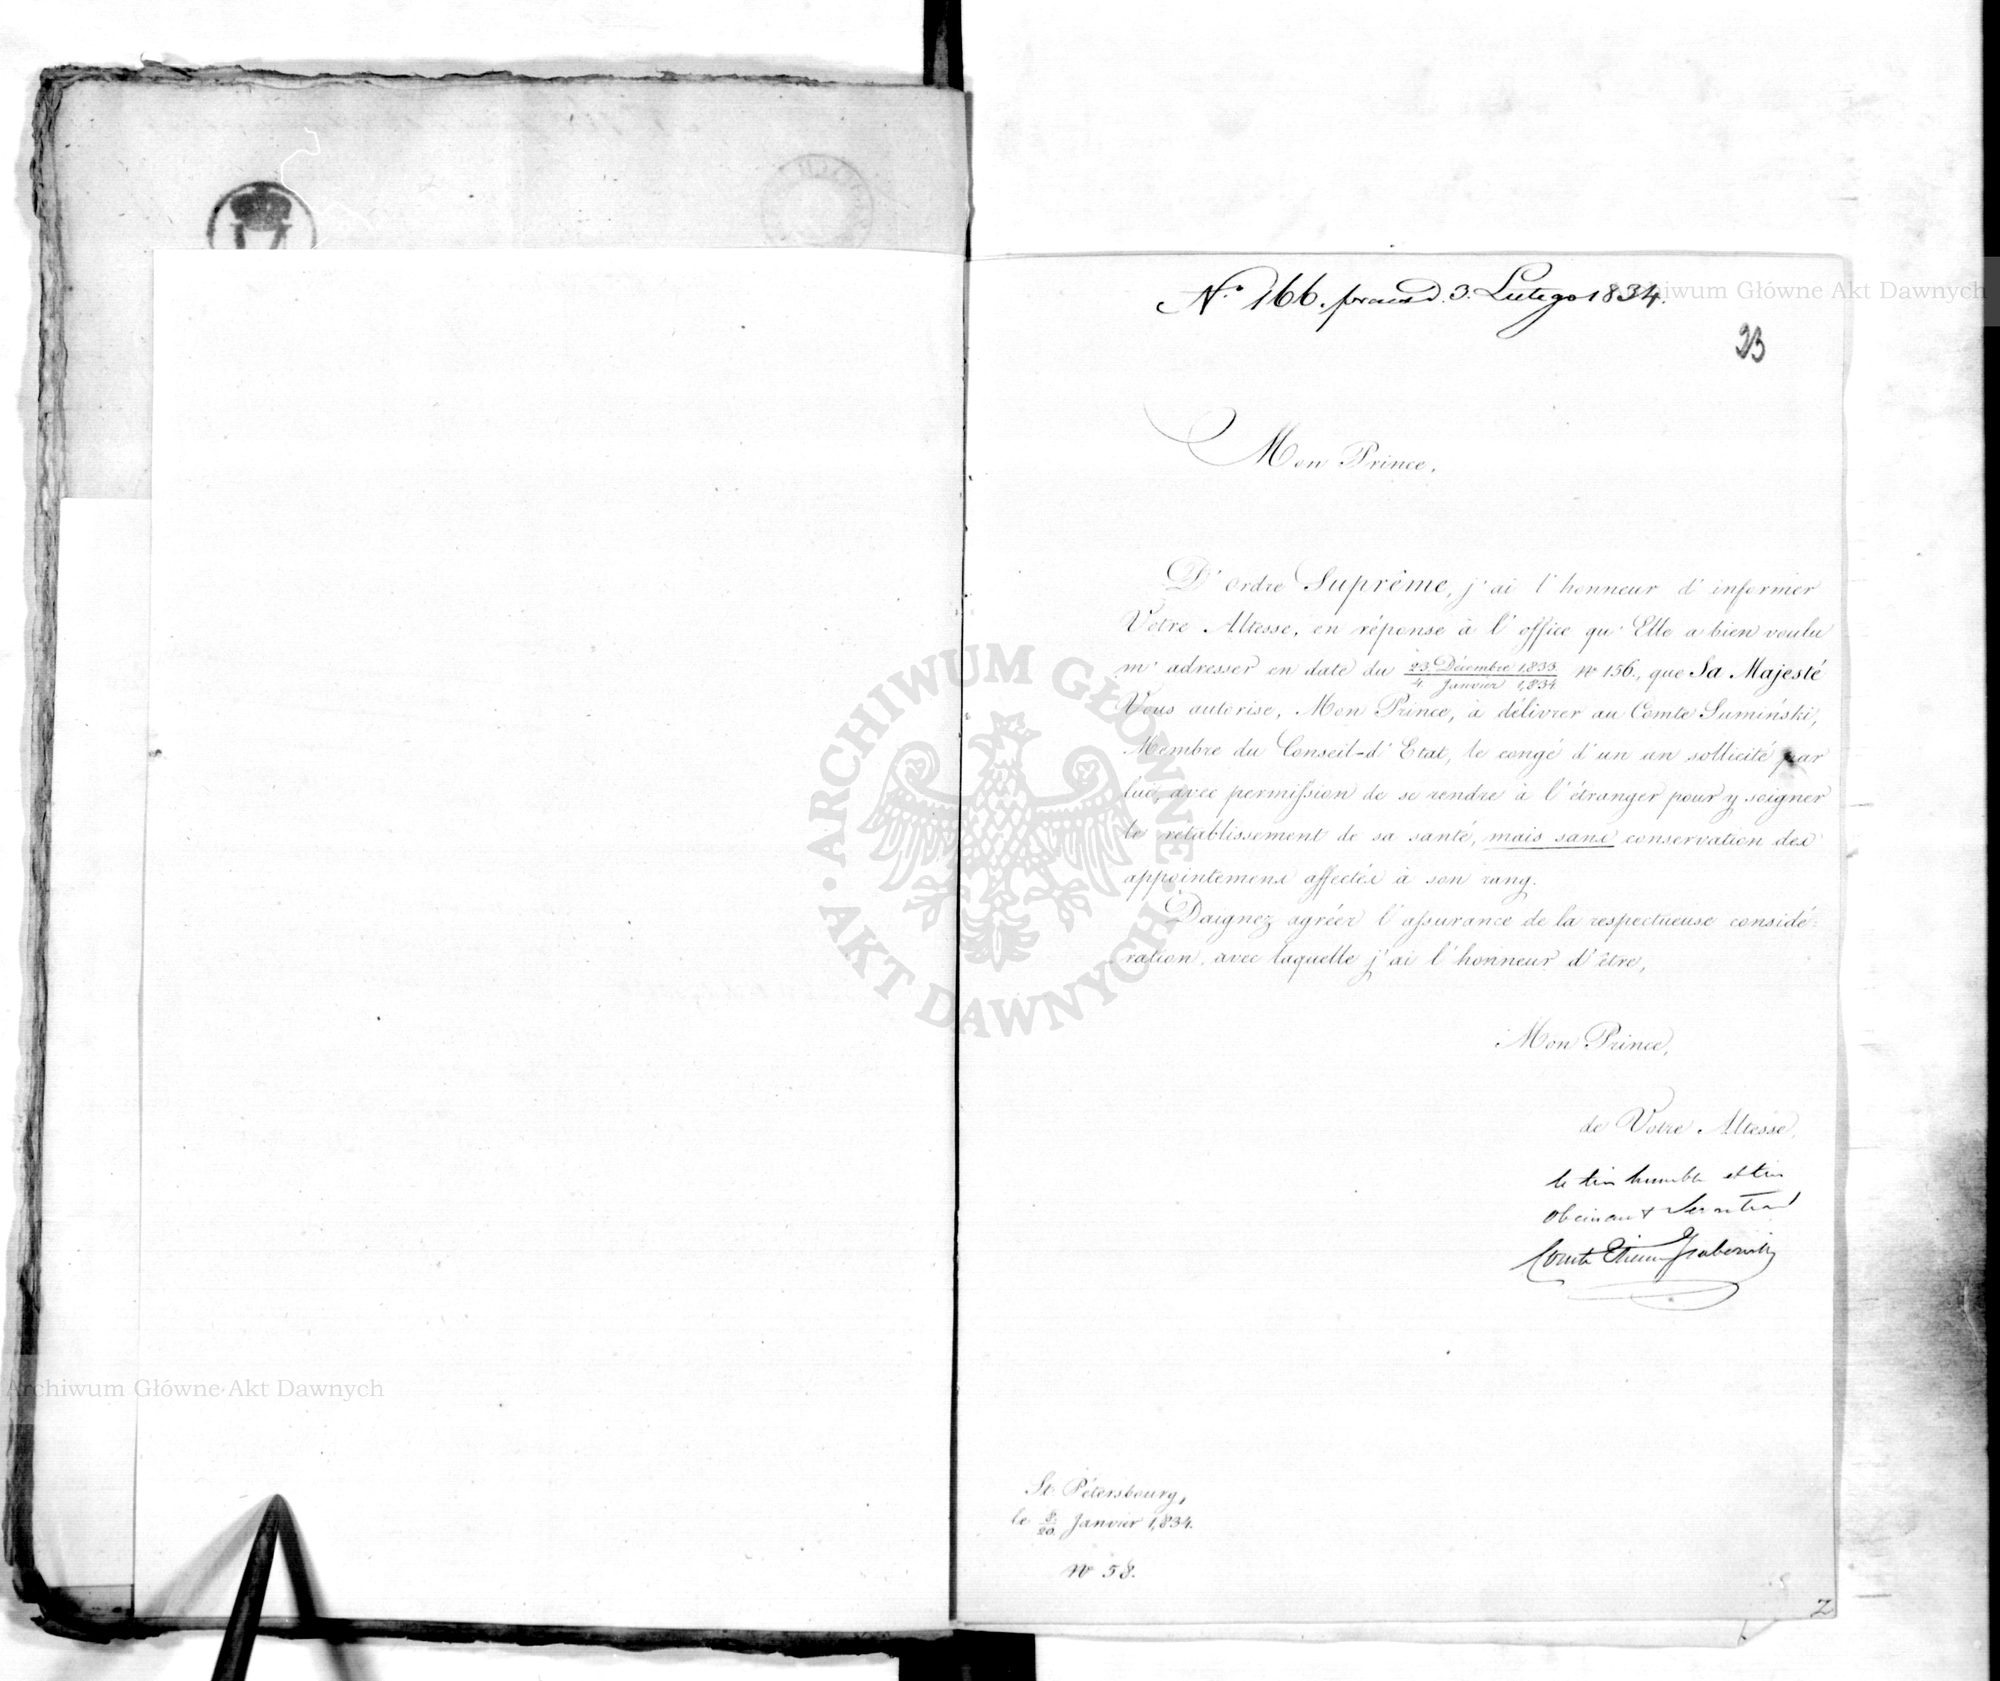 Nº 166. praes d. 3. Lutego 1834.
23
Mon Prince,
D'ordre Suprême, j'ai l'honneur d'informer
Votre Altesse, en réponse à l'office qu'Elle a bien voulu
m'adresser en date du 23. Décembre 1833. / 4. Janvier 1,834. nº 156., que Sa Majesté
Vous autorise, Mon Prince, à délivrer au Comte Sumiński,
Membre du Conseil-d'Etat, le congé d'un an sollicité par
lui, avec permission de se rendre à l'étranger pour y soigner
le rétablissement de sa santé, mais sans conservation des
appointemens affectés à son rang.
Daignez agréer l'assurance de la respectueuse considé-
ration, avec laquelle j'ai l'honneur d'être,
Mon Prince,
de Votre Altesse,
le très humble et très
obeissant Serviteur
Comte Etienne Grabowski
St. Pétersbourg,
le 8./20. Janvier 1,834.
nº 58.
2
ARCHIWUM GŁÓWNE AKT DAWNYCH
Archiwum Główne Akt Dawnych
Archiwum Główne Akt Dawnych